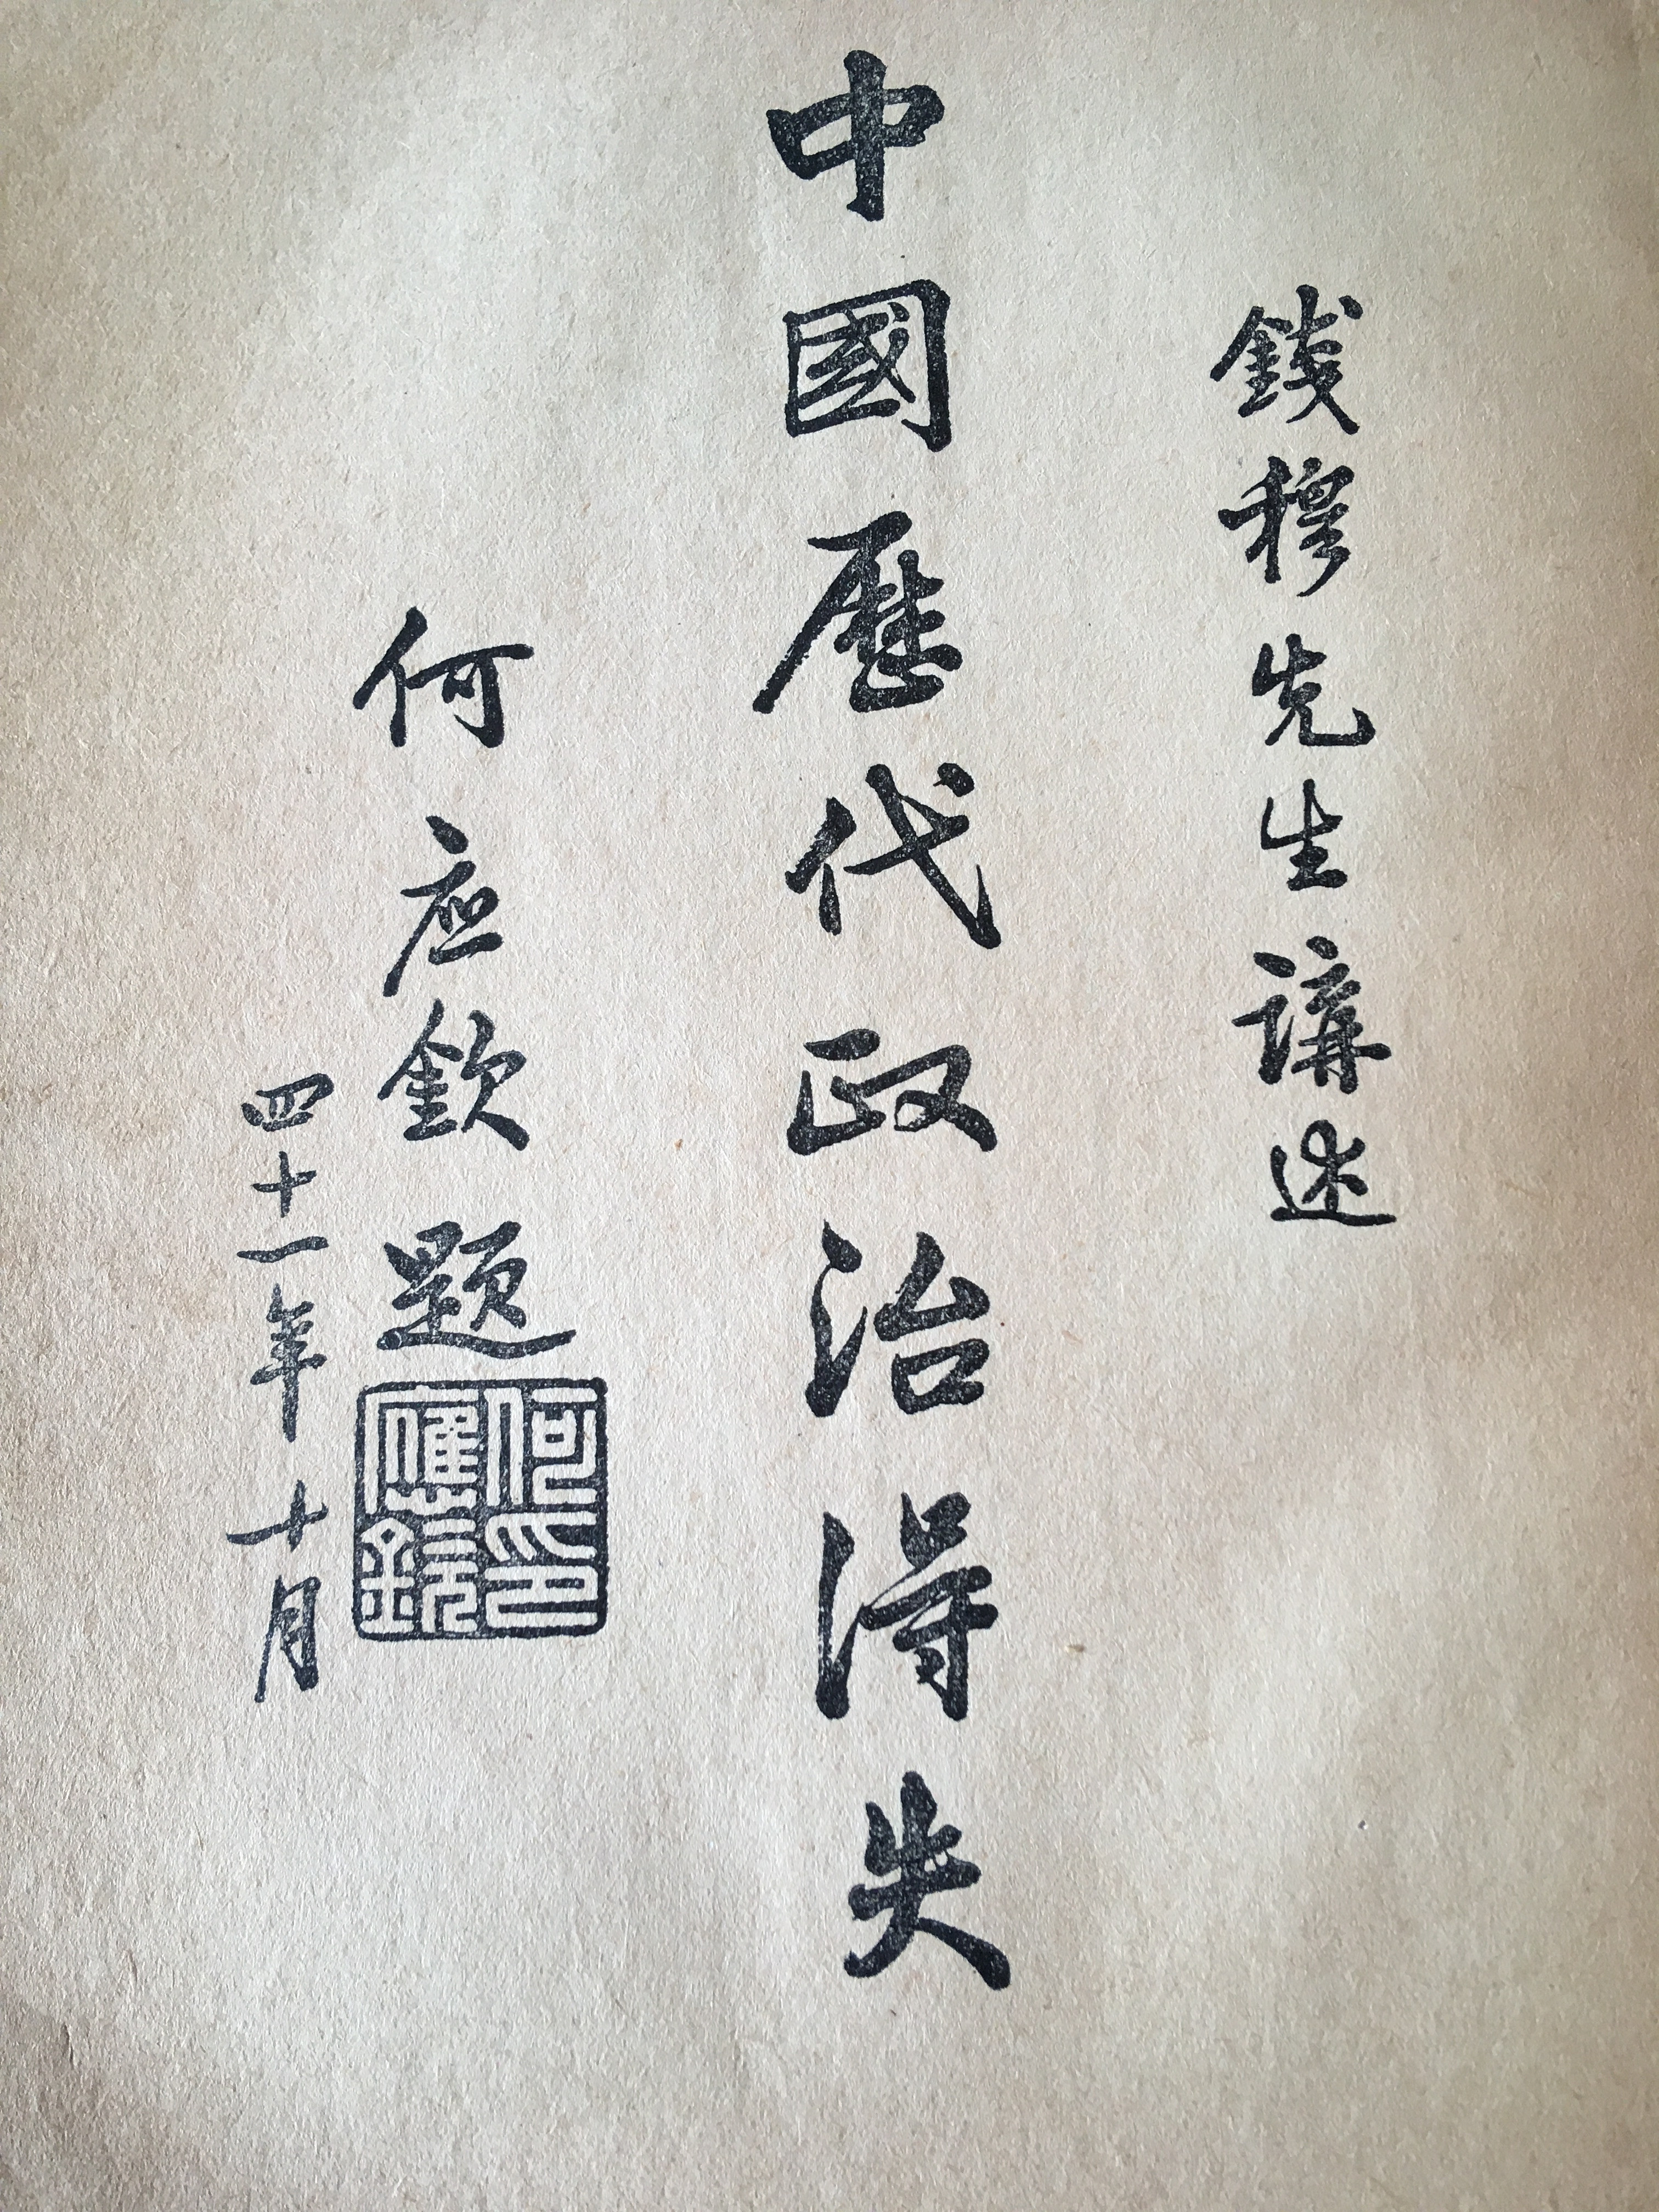 錢穆先生講述
中國歷代政治得失
何應欽題
何應欽印
四十一年十月